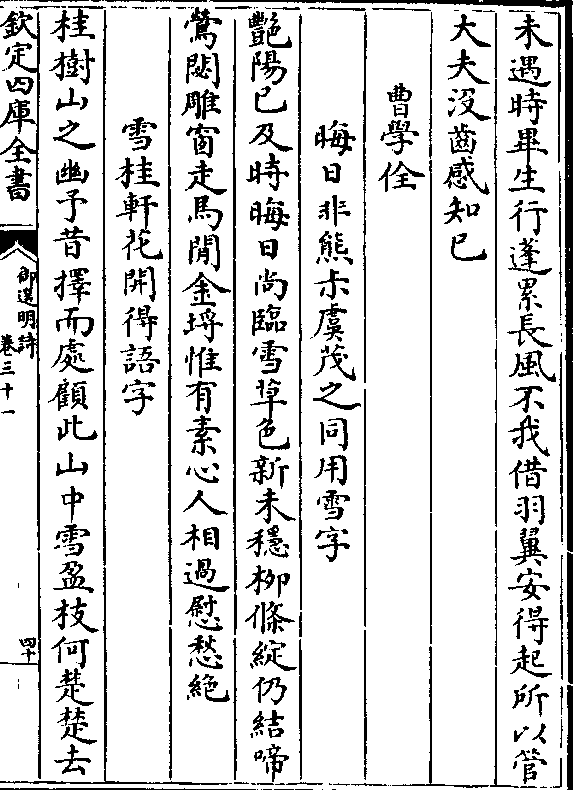 未遇時畢生行蓬累長風不我借羽翼安得起所以管
大夫沒齒感知已
曹學佺
晦日非熊未虞茂之同用雪字
艷陽已及時晦日尚臨雪草色新未穩栁條綻仍結啼
鶯閟雕窗走馬閒金埓惟有素心人相過慰愁絶
雪桂軒花開得語字
桂樹山之幽予昔擇而處顧此山中雪盈枝何楚楚去
欽定四庫全書
御選明詩
卷三十一
四十